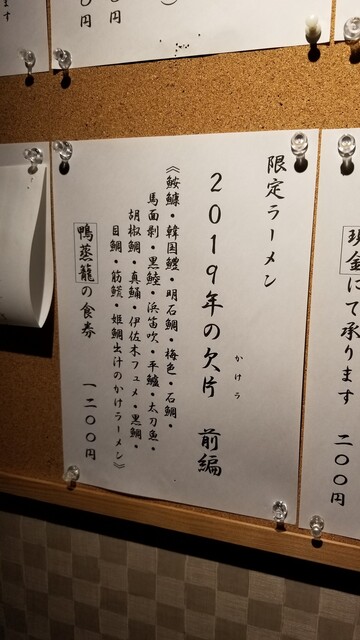 限定ラーメン
2019年の欠片 前編
かけら
《鮟鱇・韓国鱧・明石鯛・梅色・石鯛・
馬面剥・黒鯥・浜笛吹・平鱸・太刀魚・
胡椒鯛・真鯒・伊佐木フュメ・黒鯛・
目鯛・筋鮠・姫鯛出汁のかけラーメン》
鴨蒸籠の食券 一二〇〇円
現金にて承ります 二〇〇円